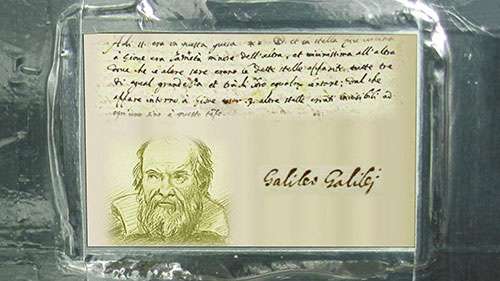 Adi 11. era in questa guisa ** et la stella più vicina
à Giove era la metà minore dell'altra, et vicinissima all'altra
dove che le altre sere erano le dette stelle apparite tutte tre
di equal grandezza et trà di loro equalmente lontane; dal che
appare intorno à Giove esser 3. altre stelle erranti invisibili ad
ogni uno sino à questo tempo.
Galileo Galilej